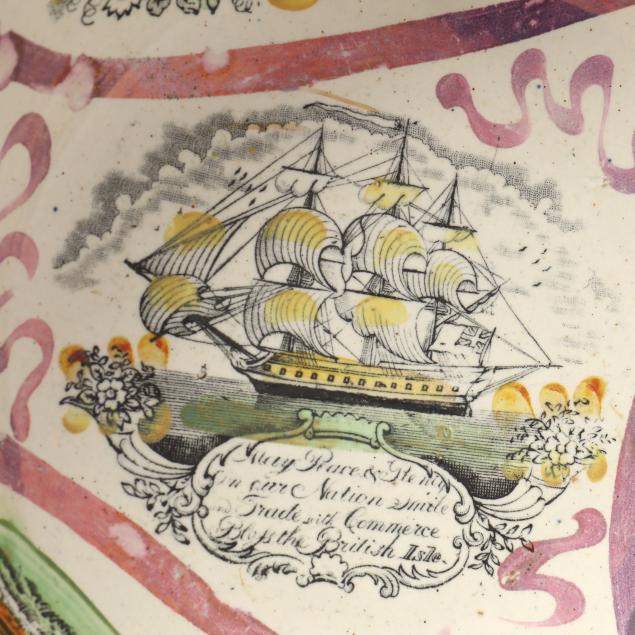 May Peace & Plenty
On our Nation Smile
and Trade with Commerce
Bless the British Isle.